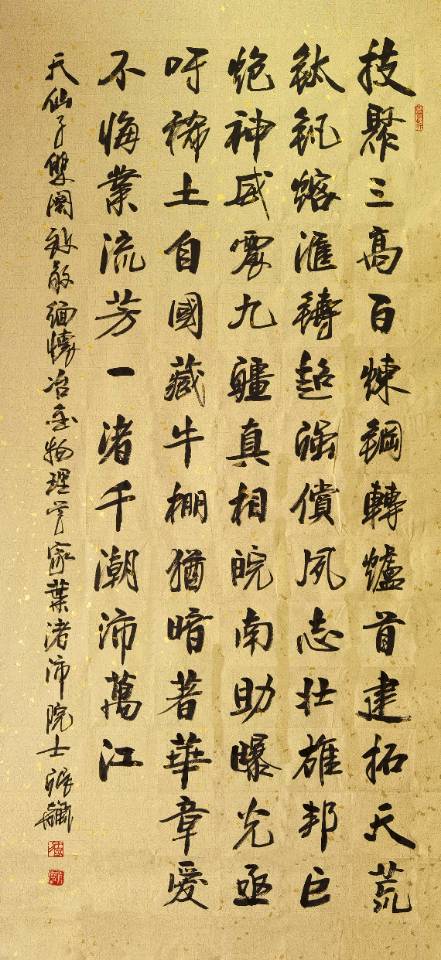 技聚三高百煉鋼轉爐首建拓天荒
鈦釩熔滙鑄超強償夙志壯雄邦巨
炮神威震九疆真相皖南助曝光亟
吁稀土自國藏牛棚猶暗著華章愛
不悔業流芳一渚千潮沛萬江
天仙子雙闋 緬懷冶金物理學家葉渚沛院士 張